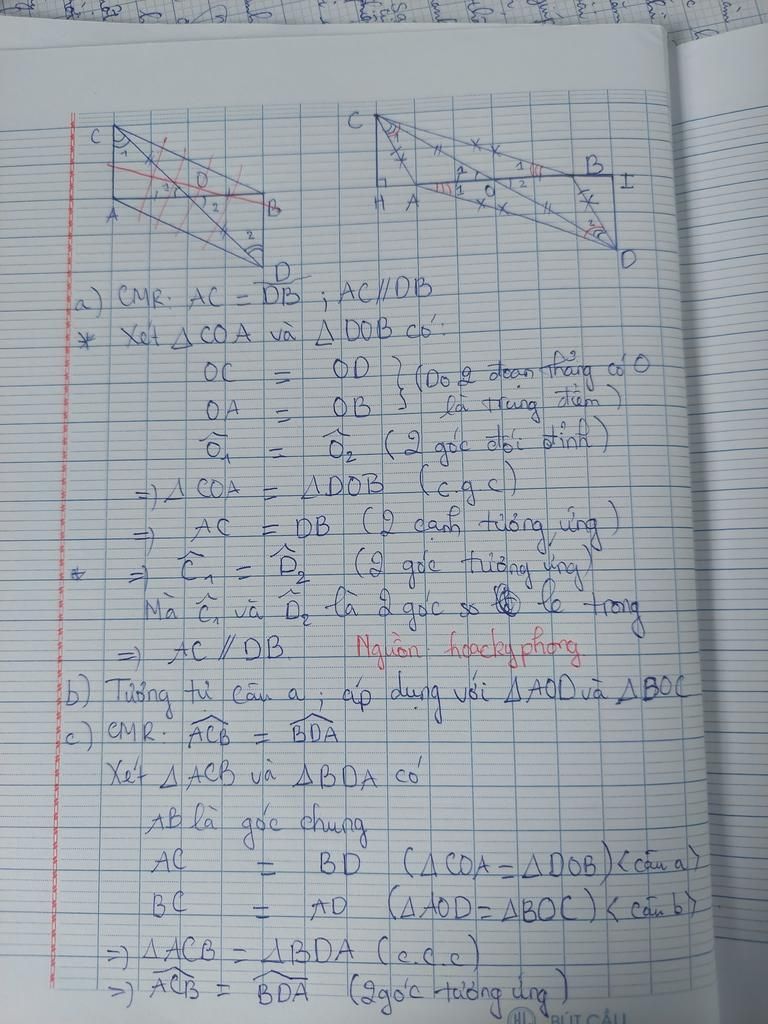 C
1
O
1
2
A
B
2
D
C
1
1
B
I
H
A
1
2
O
2
2
D
a) CMR: AC = DB ; AC // DB
* Xét △COA và △DOB có:
OC = OD } (Do 2 đoạn thẳng có O
OA = OB } là trung điểm)
Ô₁ = Ô₂ (2 góc đối đỉnh)
=> △COA = △DOB (c.g.c)
=> AC = DB (2 cạnh tương ứng)
* => Ĉ₁ = D̂₂ (2 góc tương ứng)
Mà Ĉ₁ và D̂₂ là 2 góc so le trong
=> AC // DB Nguồn: hoackyphong
b) Tương tự câu a; áp dụng với △AOD và △BOC
c) CMR: ACB = BDA
Xét △ACB và △BDA có
AB là góc chung
AC = BD (△COA = △DOB) <câu a>
BC = AD (△AOD = △BOC) <câu b>
=> △ACB = △BDA (c.c.c)
=> ACB = BDA (2 góc tương ứng)
BÚT CÂU